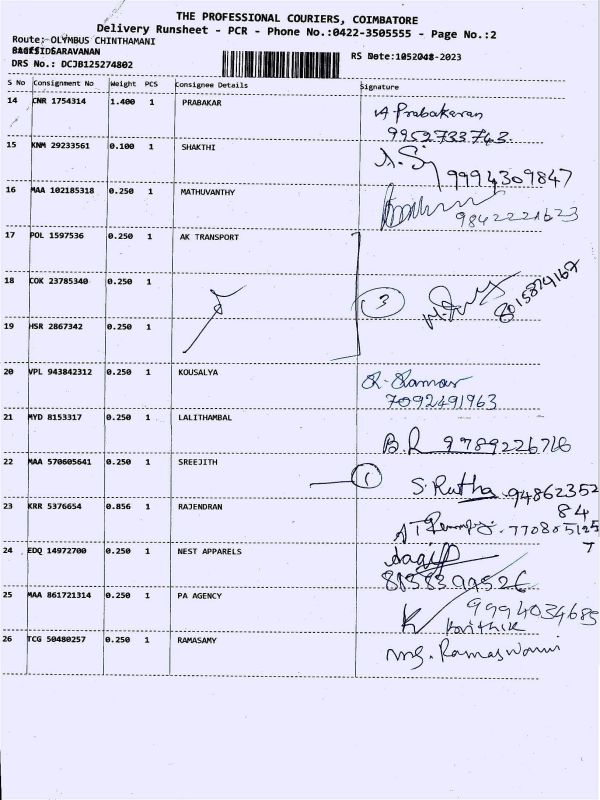 THE PROFESSIONAL COURIERS, COIMBATORE
Delivery Runsheet - PCR - Phone No.:0422-3505555 - Page No.:2
Route: OLYMBUS CHINTHAMANI
SARAVANAN
RS Date: -2023
DRS No.: DCJB125274802
S No Consignment No Weight PCS Consignee Details Signature
14 CNR 1754314 1.400 1 PRABAKAR
A Prabakaran
9952733743
15 KNM 29233561 0.100 1 SHAKTHI
9994309847
16 MAA 102185318 0.250 1 MATHUVANTHY
9842221623
17 POL 1597536 0.250 1 AK TRANSPORT
18 COK 23785340 0.250 1
3
8015874167
19 HSR 2867342 0.250 1
20 VPL 943842312 0.250 1 KOUSALYA
7092491963
21 MYD 8153317 0.250 1 LALITHAMBAL
B.R 9789226716
22 MAA 570605641 0.250 1 SREEJITH
1
S. Rutha 94862352
84
23 KRR 5376654 0.856 1 RAJENDRAN
770805125
7
24 EDQ 14972700 0.250 1 NEST APPARELS
25 MAA 861721314 0.250 1 PA AGENCY
9994034685
Karthik
26 TCG 50480257 0.250 1 RAMASAMY
Ramaswami